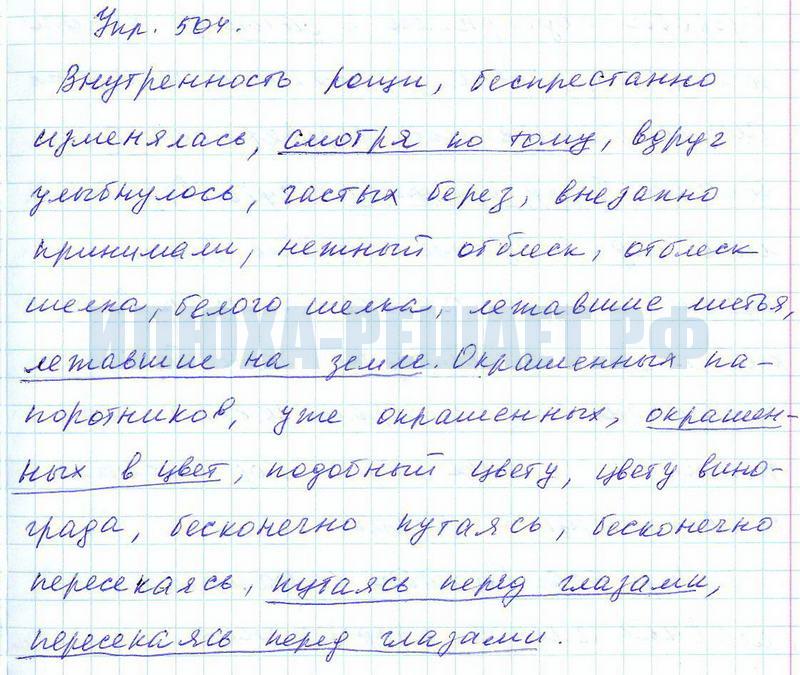 Упр. 504.
Внутренность рощи, беспрестанно
изменялась, смотря по тому, вдруг
улыбнулось, частых берез, внезапно
принимали, нежный отблеск, отблеск
шелка, белого шелка, лежавшие листья,
ИЛЮХА-РЕШАЕТ.РФ
лежавшие на земле. Окрашенных па-
поротников, уже окрашенных, окрашен-
ных в цвет, подобный цвету, цвету вино-
града, бесконечно путаясь, бесконечно
пересекаясь, путаясь перед глазами,
пересекаясь перед глазами.